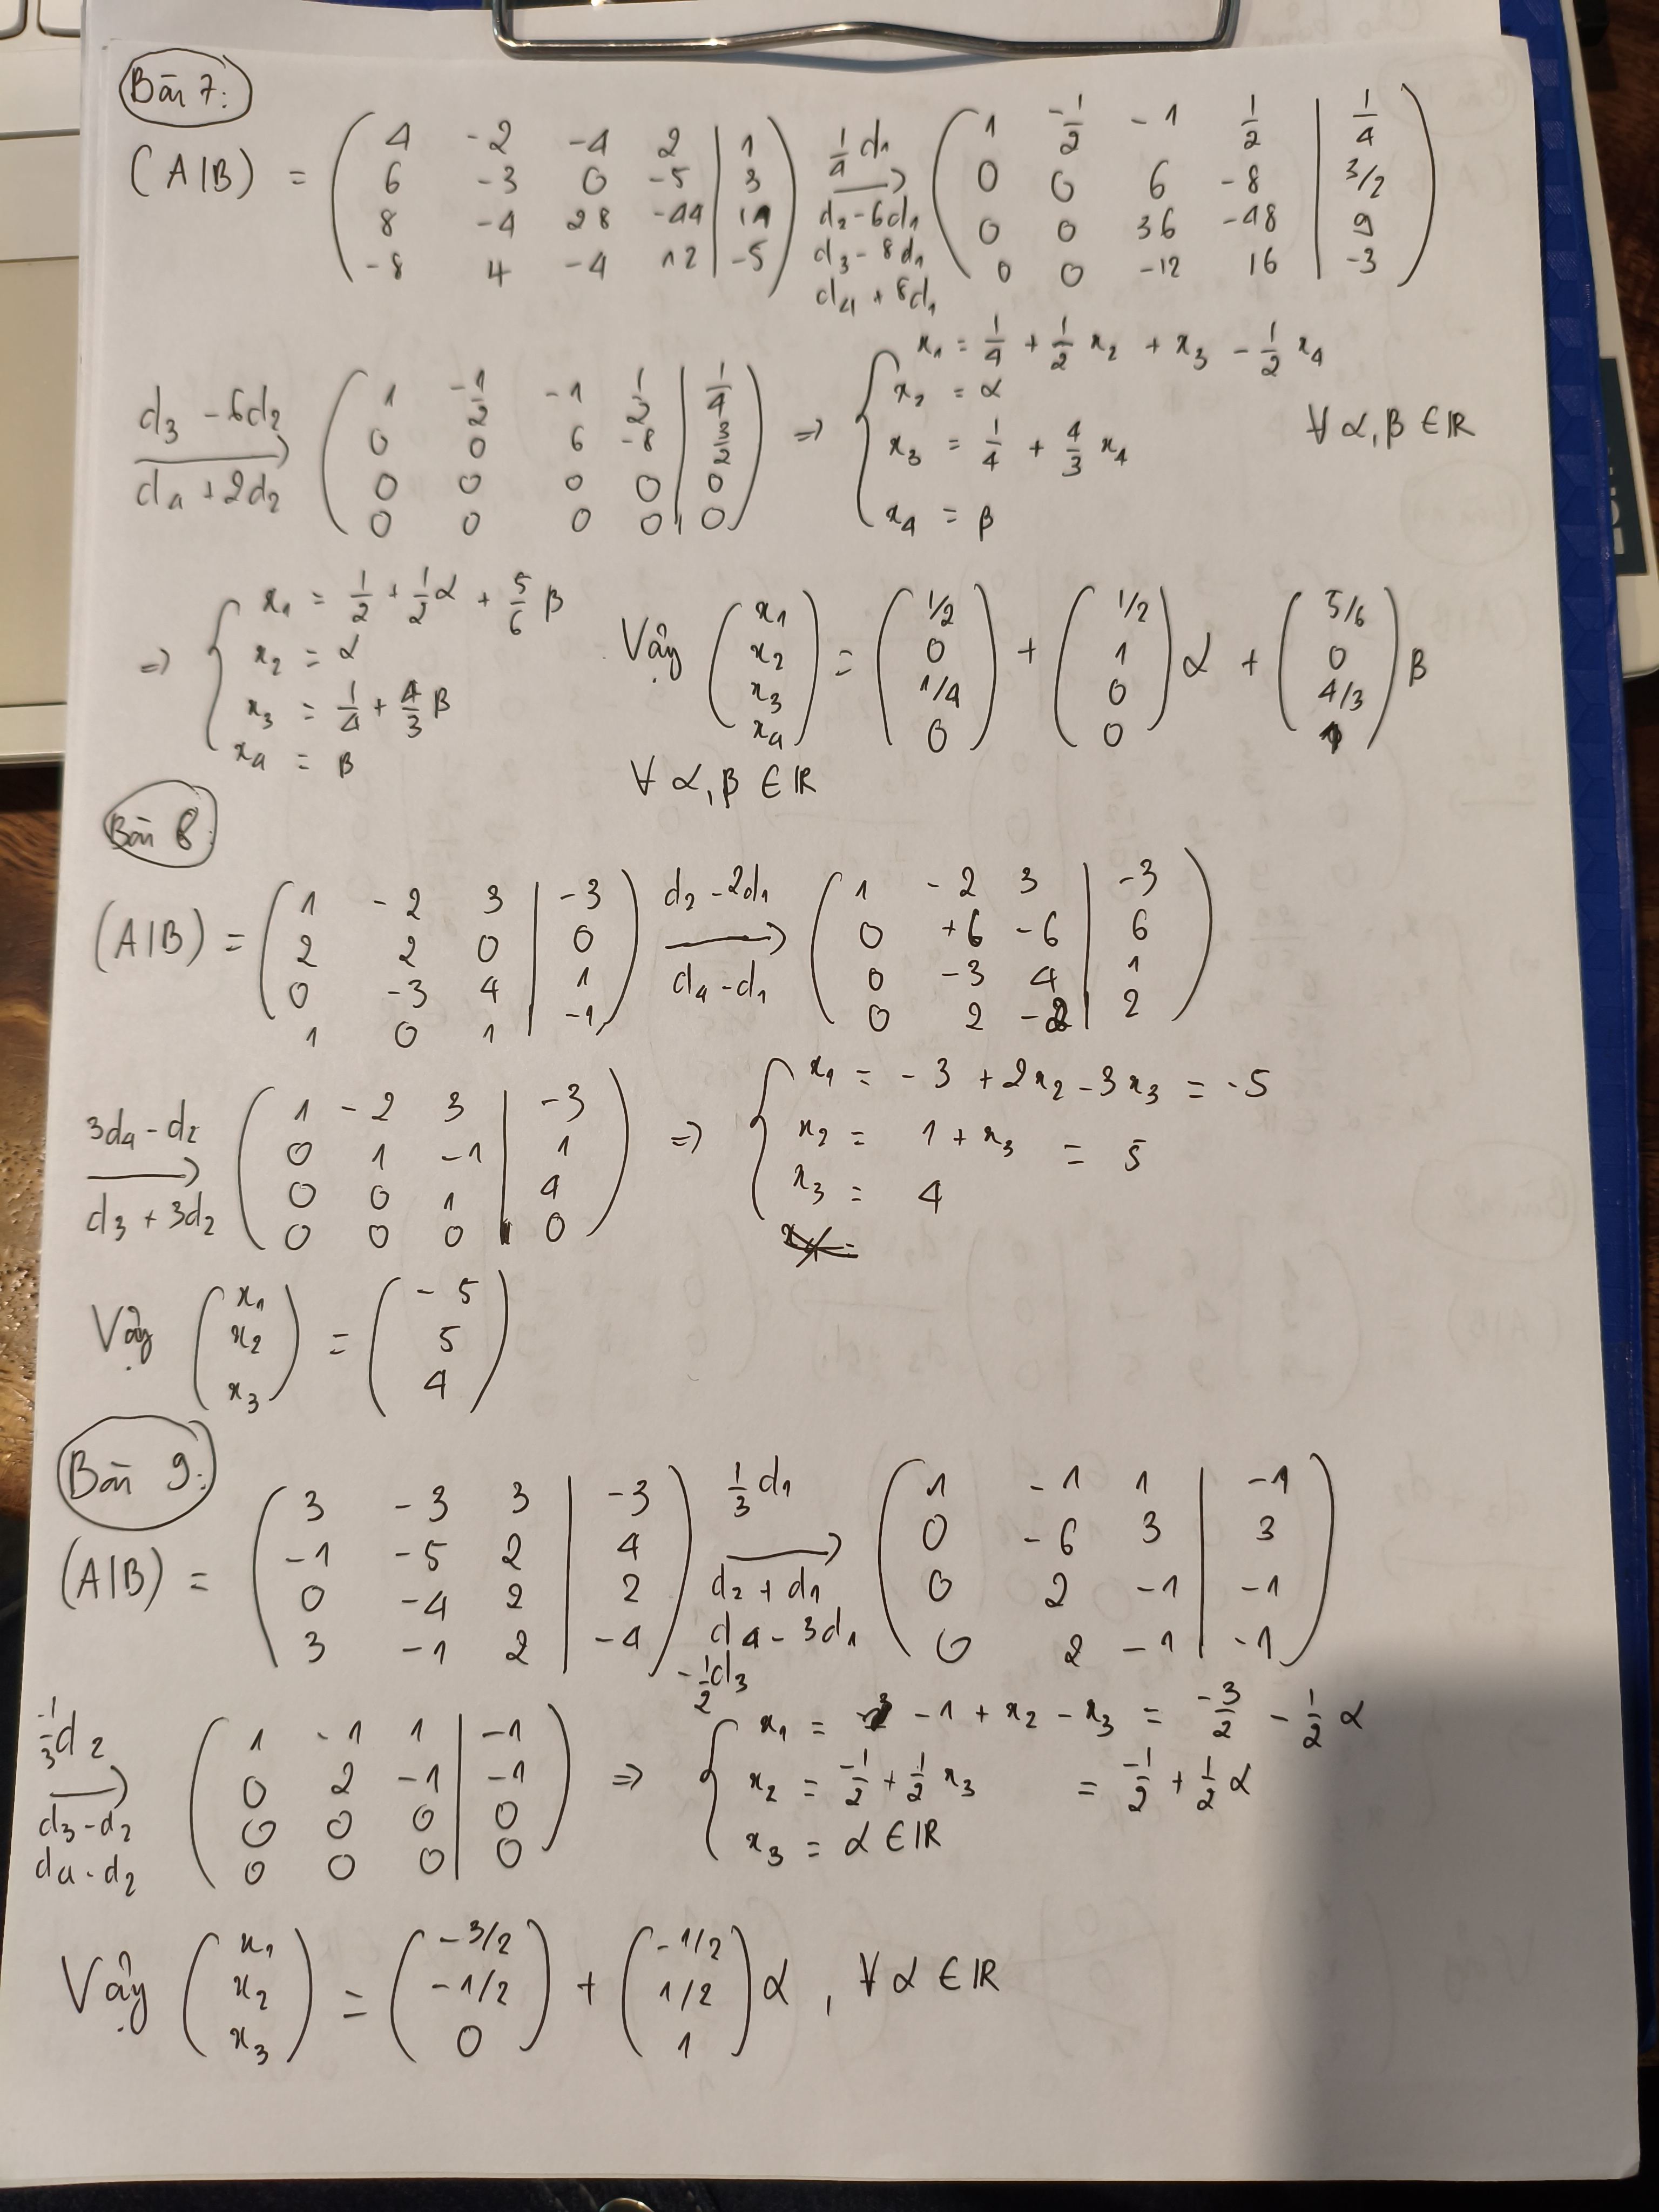 Bài 7:
(A|B) = ( 4 -2 -4 2 | 1 ; 6 -3 0 -5 | 3 ; 8 -4 28 -44 | 11 ; -8 4 -4 12 | -5 ) 1/4 d1, d2 - 6d1, d3 - 8d1, d4 + 8d1 → ( 1 -1/2 -1 1/2 | 1/4 ; 0 0 6 -8 | 3/2 ; 0 0 36 -48 | 9 ; 0 0 -12 16 | -3 )
d3 - 6d2, d4 + 2d2 → ( 1 -1/2 -1 1/2 | 1/4 ; 0 0 6 -8 | 3/2 ; 0 0 0 0 | 0 ; 0 0 0 0 | 0 ) ⇒ { x1 = 1/4 + 1/2 x2 + x3 - 1/2 x4 ; x2 = α ; x3 = 1/4 + 4/3 x4 ; x4 = β ∀ α, β ∈ ℝ
⇒ { x1 = 1/2 + 1/2 α + 5/6 β ; x2 = α ; x3 = 1/4 + 4/3 β ; x4 = β Vậy ( x1 ; x2 ; x3 ; x4 ) = ( 1/2 ; 0 ; 1/4 ; 0 ) + ( 1/2 ; 1 ; 0 ; 0 ) α + ( 5/6 ; 0 ; 4/3 ; 1 ) β
∀ α, β ∈ ℝ
Bài 8:
(A|B) = ( 1 -2 3 | -3 ; 2 2 0 | 0 ; 0 -3 4 | 1 ; 1 0 1 | -1 ) d2 - 2d1, d4 - d1 → ( 1 -2 3 | -3 ; 0 +6 -6 | 6 ; 0 -3 4 | 1 ; 0 2 -2 | 2 )
3d4 - d2, d3 + 3d2 → ( 1 -2 3 | -3 ; 0 1 -1 | 1 ; 0 0 1 | 4 ; 0 0 0 | 0 ) ⇒ { x1 = -3 + 2x2 - 3x3 = -5 ; x2 = 1 + x3 = 5 ; x3 = 4
Vậy ( x1 ; x2 ; x3 ) = ( -5 ; 5 ; 4 )
Bài 9:
(A|B) = ( 3 -3 3 | -3 ; -1 -5 2 | 4 ; 0 -4 2 | 2 ; 3 -1 2 | -4 ) 1/3 d1, d2 + d1, d4 - 3d1, -1/2 d3 → ( 1 -1 1 | -1 ; 0 -6 3 | 3 ; 0 2 -1 | -1 ; 0 2 -1 | -1 )
-1/3 d2, d3 - d2, d4 - d2 → ( 1 -1 1 | -1 ; 0 2 -1 | -1 ; 0 0 0 | 0 ; 0 0 0 | 0 ) ⇒ { x1 = -1 + x2 - x3 = -3/2 - 1/2 α ; x2 = -1/2 + 1/2 x3 = -1/2 + 1/2 α ; x3 = α ∈ ℝ
Vậy ( x1 ; x2 ; x3 ) = ( -3/2 ; -1/2 ; 0 ) + ( -1/2 ; 1/2 ; 1 ) α , ∀ α ∈ ℝ